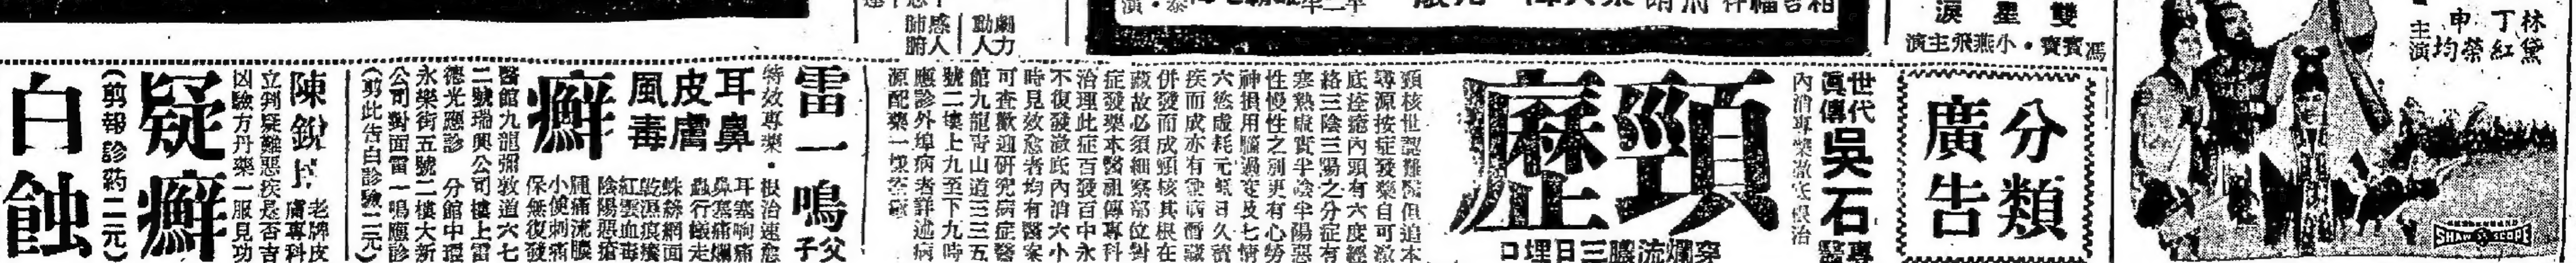 林黛
丁紅
申榮均
主演
SHAW SCOPE
雙星淚
馮寶寶・小燕飛主演
劇力動人
感人肺腑
分類
廣告
世代
眞傳
吳石
專醫
內消專藥徹底根治
頸癧
穿爛流膿三日埋口
頸核世認難醫但追本
尋源按症發藥自可澈
底痊癒內頭有六度經
絡三陰三陽之分症有
寒熱虛實半陰半陽惡
性慢性之別更有心勞
神損用腦過度及七情
六慾虛耗元氣日久積
疾而成亦有從病潛藏
併發而成頸核其根在
藏故必須細察部位對
症發藥本醫祖傳專科
治理此症百發百中永
不復發澈底內消六小
時見效愈者均有醫案
可查歡迎研究病症醫
館九龍背山道三三五
號二樓上九至下九時
應診外埠病者詳述病
源配藥一樣至療
雷一鳴父子
特效專藥・根治速愈
耳鼻
皮膚
風毒
癬
耳塞响痛
鼻塞痛爛
蟲行蟻走
蛛絲網面
乾濕痕癢
紅雲血毒
陰陽惡瘡
腫痛流膿
小便刺痛
保無復發
醫館九龍彌敦道六七
二號瑞興公司樓上雷
德光應診 分館中環
永樂街五號二樓大新
公司對面雷一鳴應診
(剪此告白診驗二元)
疑癬
陳銳
老牌皮
膚專科
立判疑難惡疾是否吉
凶驗方丹藥一服見功
(剪報診药二元)
白蝕